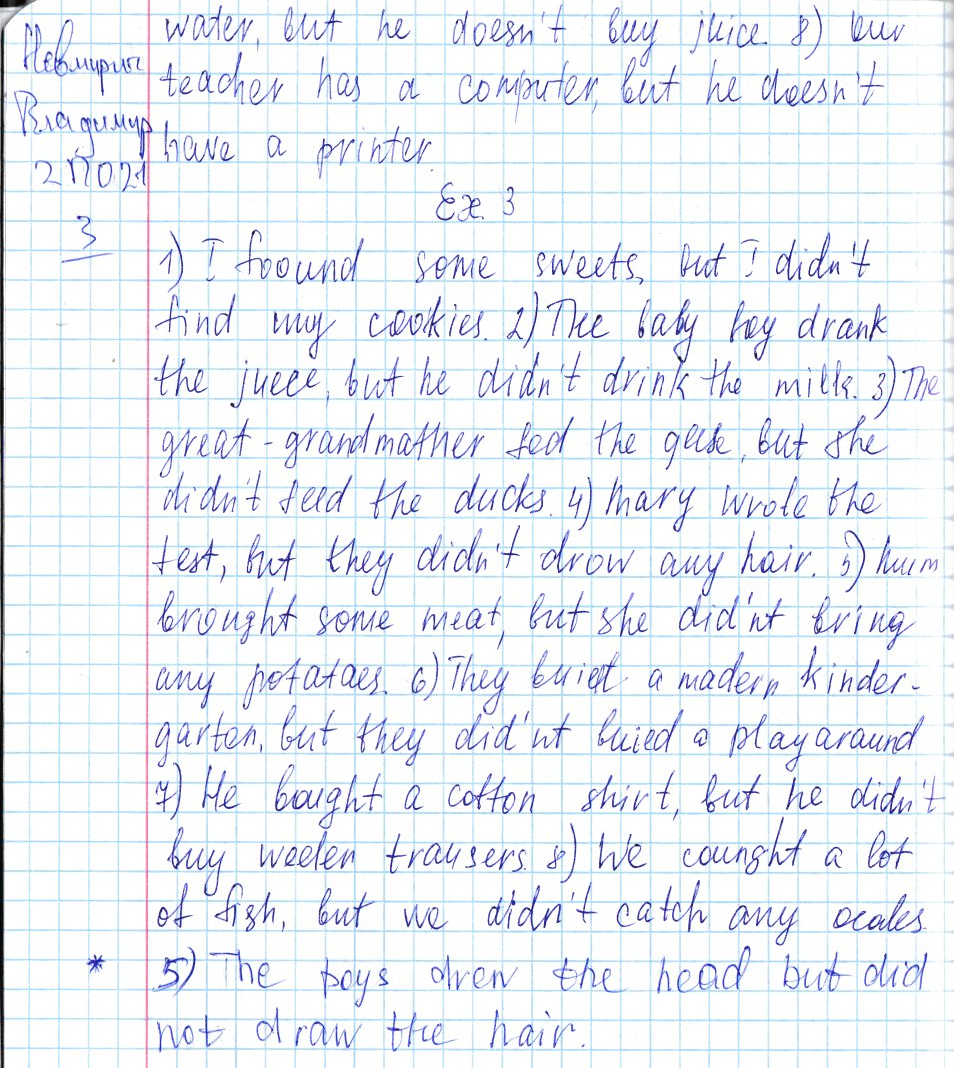 Невмирич
Владимир
2ПО21
3
water, but he doesn't buy juice. 8) Our
teacher has a computer, but he doesn't
have a printer.
Ex. 3
1) I foound some sweets, but I didn't
find my cookies. 2) The baby boy drank
the juece, but he didn't drink the milk. 3) The
great-grandmather fed the geese, but she
didn't feed the ducks. 4) Mary wrote the
test, but they didn't drow any hair. 5) Mum
brought some meat, but she did'nt bring
any potataes. 6) They buidt a madern kinder-
garten, but they did'nt buied a playaraund
7) He baught a cotton shirt, but he didn't
buy weelen trausers. 8) We caunght a lot
of fish, but we didn't catch any
* 5) The boys drew the head but did
not draw the hair.